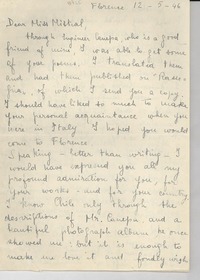 Florence 12-5-46
Dear Miss Mistral,
through Eugenio Cuneps, who is a good
friend of mine, I was able to get some
of your poems. I translated them
and had them published on "Rasse-
gna", of which I send you a copy.
I should have liked so much to make
your personal acquaintance when you
were here in Italy. I hoped you would
come to Florence.
Speaking - better than writing - I
would have expressed you all my
profound admiration for you, for
your works - and for your country.
I know Chile only through the
descriptions of Mr. and a
beautiful photograph album he once
showed me: but it is enough to
make me love it and fondly wish